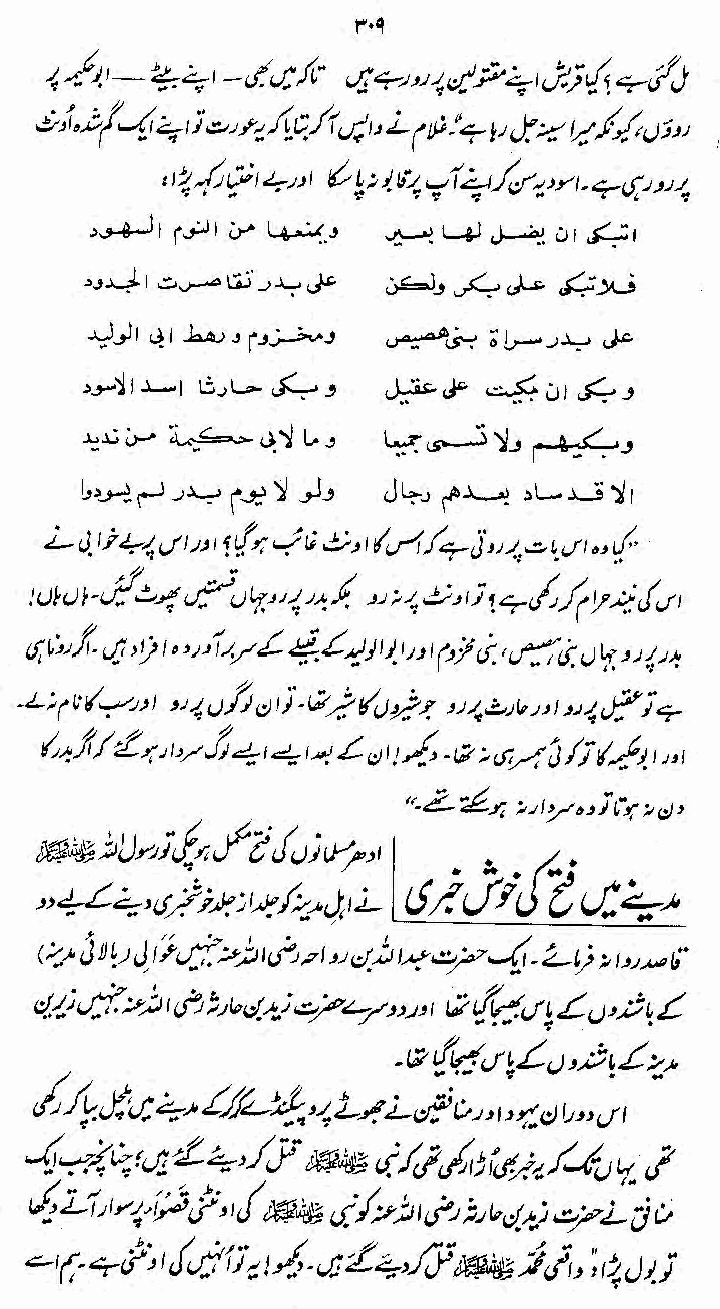 ۳۰۹
مل گئی ہے؟ کیا قریش اپنے مقتولین پر رو رہے ہیں تاکہ میں بھی — اپنے بیٹے — ابوحکیمہ پر
روؤں، کیونکہ میرا سینہ جل رہا ہے"۔ غلام نے واپس آ کر بتایا کہ یہ عورت تو اپنے ایک گم شدہ اُونٹ
پر رو رہی ہے۔ اسود یہ سن کر اپنے آپ پر قابو نہ پا سکا اور بے اختیار کہہ پڑا:
اتبکی ان یضل لھا بعیر ویمنعھا من النوم السھود
فلا تبکی علی بکر ولکن علی بدر تقاصرت الجدود
علی بدر سراۃ بنی ھصیص ومخزوم ورھط ابی الولید
وبکی ان بکیت علی عقیل وبکی حارثا اسد الاسود
وبکیھم ولا تسمی جمیعا وما لابی حکیمۃ من ندید
الا قد ساد بعدھم رجال ولو لا یوم بدر لم یسودوا
"کیا وہ اس بات پر روتی ہے کہ اس کا اونٹ غائب ہو گیا؟ اور اس پر بے خوابی نے
اس کی نیند حرام کر رکھی ہے؟ تو اونٹ پر نہ رو بلکہ بدر پر رو جہاں قسمتیں پھوٹ گئیں۔ ہاں ہاں!
بدر پر رو جہاں بنی ہصیص، بنی مخزوم اور ابوالولید کے قبیلے کے سربرآوردہ افراد ہیں۔ اگر رونا ہی
ہے تو عقیل پر رو اور حارث پر رو جو شیروں کا شیر تھا۔ تو ان لوگوں پر رو اور سب کا نام نہ لے۔
اور ابوحکیمہ کا تو کوئی ہمسر ہی نہ تھا۔ دیکھو! ان کے بعد ایسے ایسے لوگ سردار ہو گئے کہ اگر بدر کا
دن نہ ہوتا تو وہ سردار نہ ہو سکتے تھے۔"
مدینے میں فتح کی خوش خبری
ادھر مسلمانوں کی فتح مکمل ہو چکی تو رسول اللہ ﷺ
نے اہلِ مدینہ کو جلد از جلد خوشخبری دینے کے لیے دو
قاصد روانہ فرمائے۔ ایک حضرت عبداللہ بن رواحہ رضی اللہ عنہ جنہیں عَوَالی (بالائی مدینہ)
کے باشندوں کے پاس بھیجا گیا تھا اور دوسرے حضرت زید بن حارثہ رضی اللہ عنہ جنہیں زیرین
مدینہ کے باشندوں کے پاس بھیجا گیا تھا۔
اس دوران یہود اور منافقین نے جھوٹے پروپیگنڈے کر کر کے مدینے میں ہلچل بپا کر رکھی
تھی یہاں تک کہ یہ خبر بھی اُڑا رکھی تھی کہ نبی ﷺ قتل کر دیئے گئے ہیں؛ چنانچہ جب ایک
منافق نے حضرت زید بن حارثہ رضی اللہ عنہ کو نبی ﷺ کی اونٹنی قَصْوَاء پر سوار آتے دیکھا
تو بول پڑا: "واقعی مُحَمَّد ﷺ قتل کر دیئے گئے ہیں۔ دیکھو! یہ تو اُنہیں کی اونٹنی ہے۔ ہم اسے